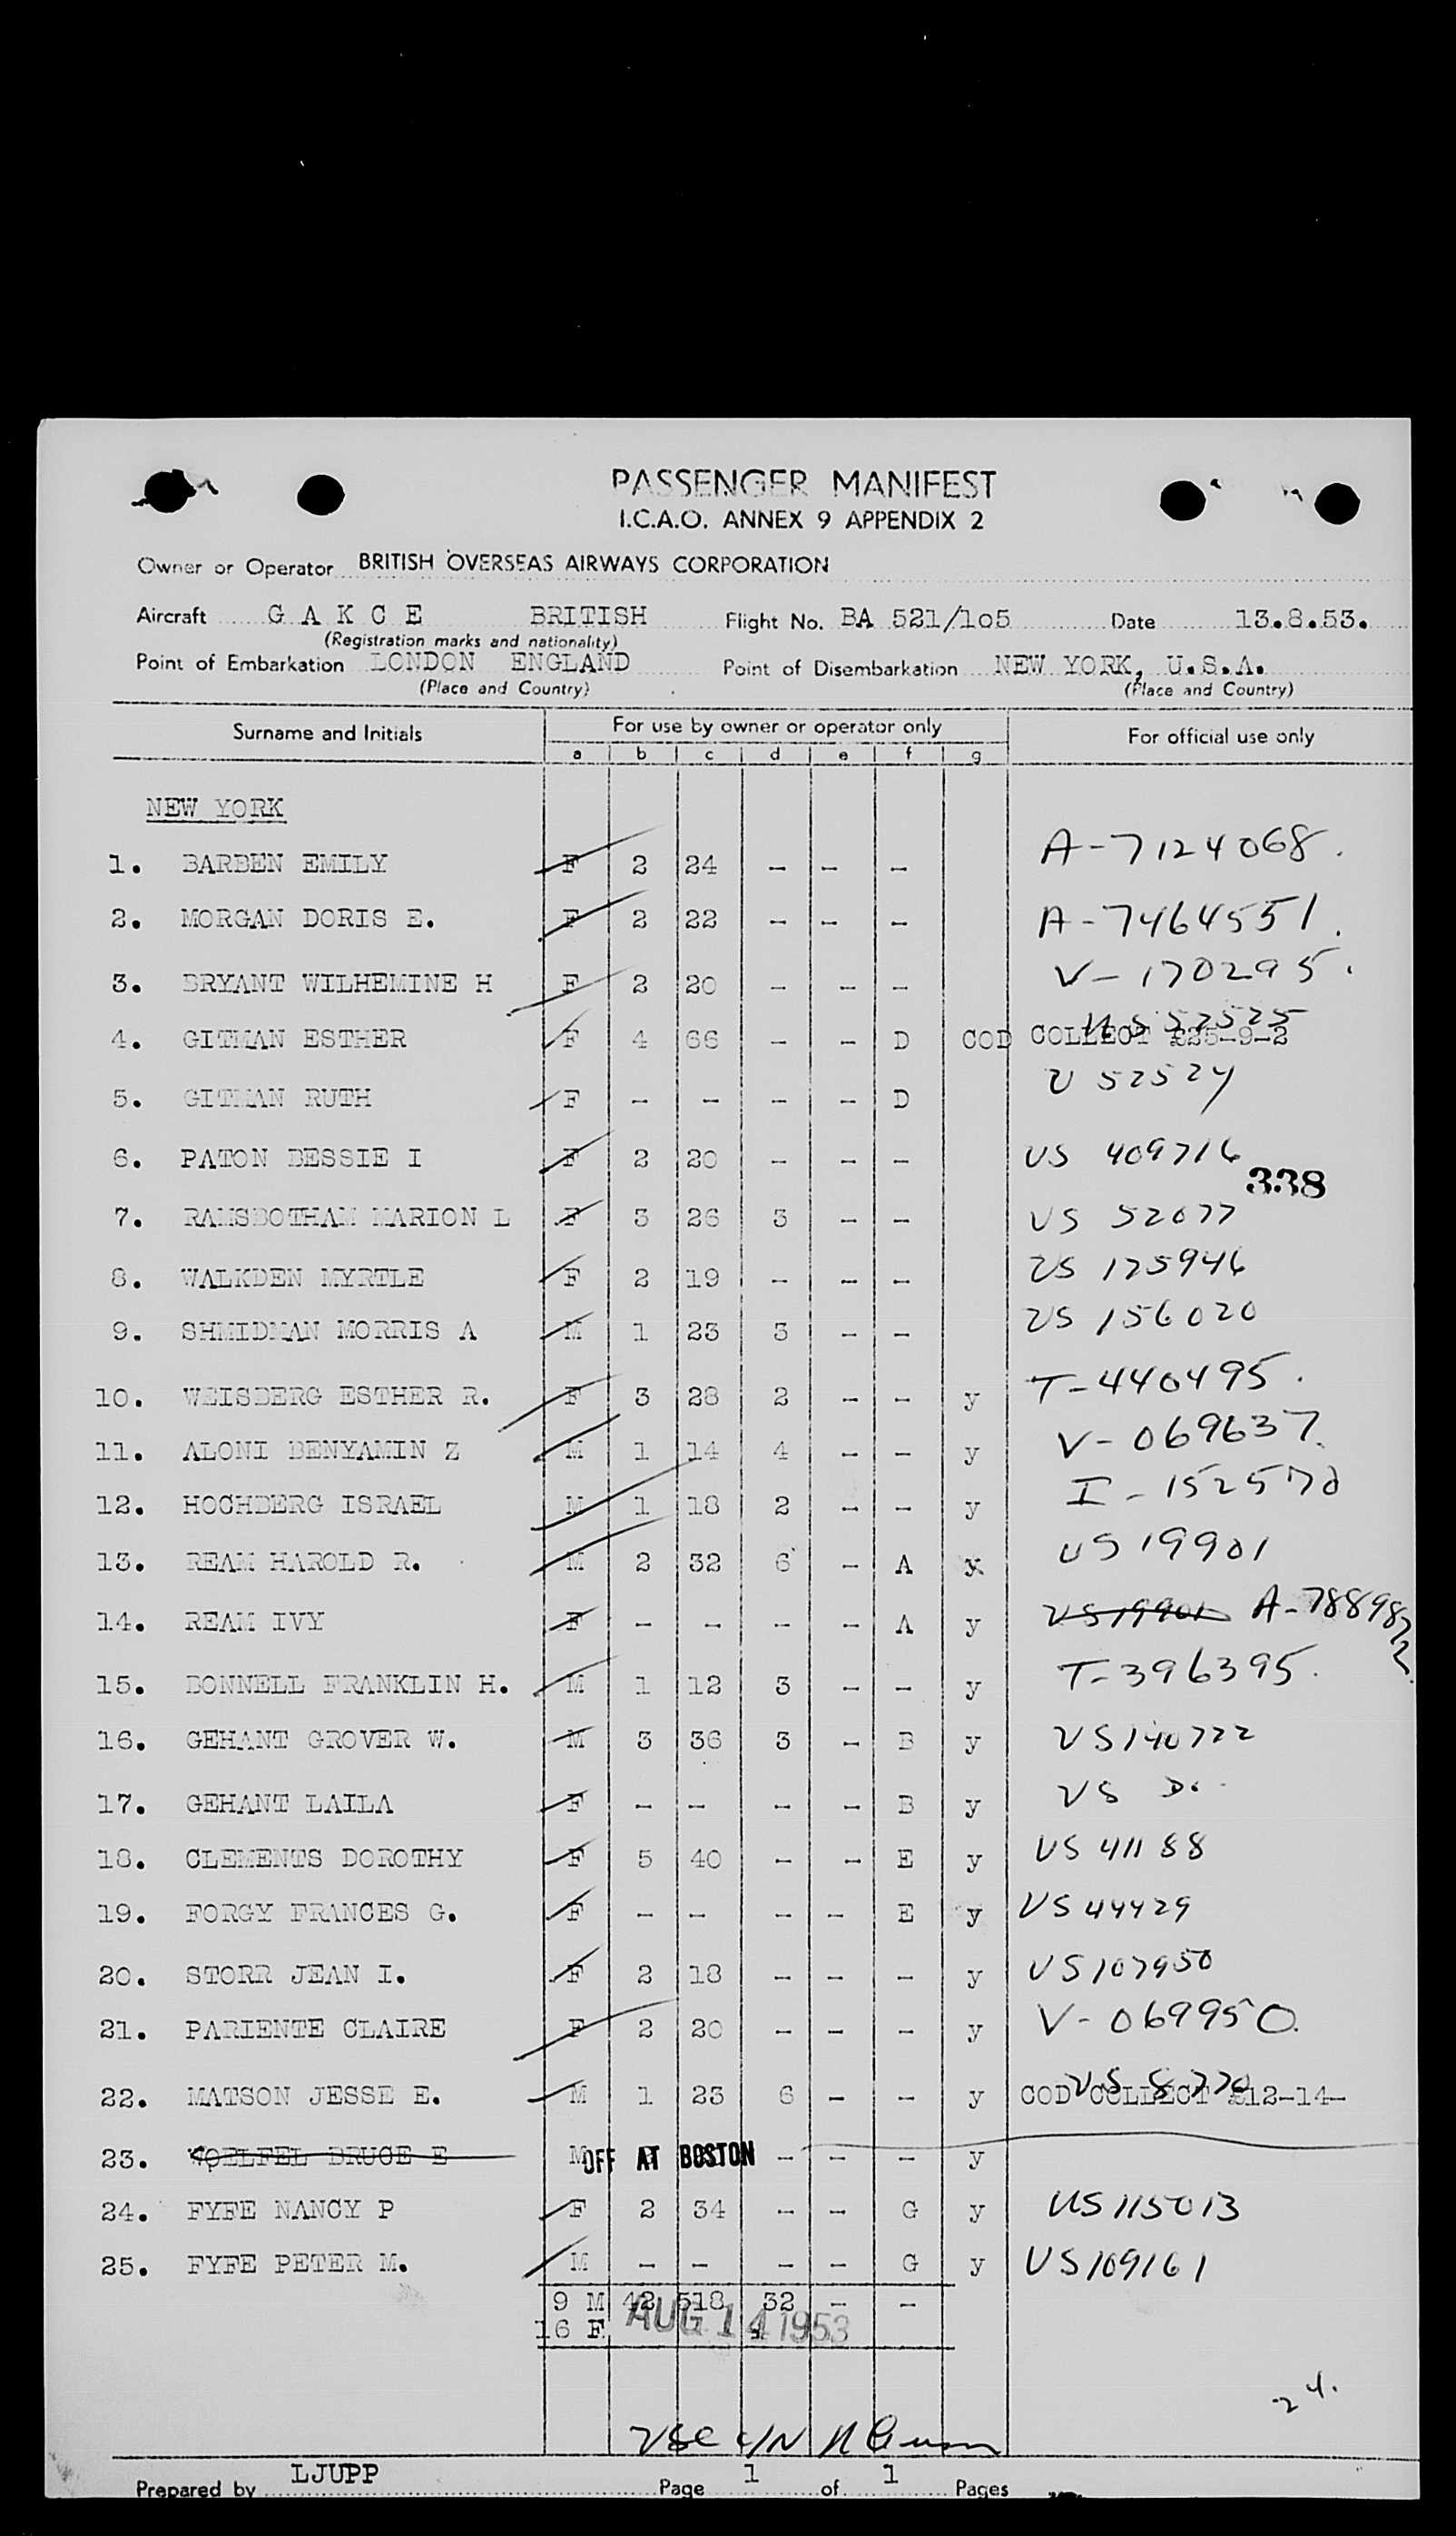 PASSENGER MANIFEST
I.C.A.O. ANNEX 9 APPENDIX 2
Owner or Operator BRITISH OVERSEAS AIRWAYS CORPORATION
Aircraft G A K C E BRITISH Flight No. BA 521/1o5 Date 13.8.53.
(Registration marks and nationality)
Point of Embarkation LONDON ENGLAND Point of Disembarkation NEW YORK, U.S.A.
(Place and Country) (Place and Country)
Surname and Initials For use by owner or operator only For official use only
a b c d e f g
NEW YORK
1. BARBEN EMILY F 2 24 - - - A-7124068.
2. MORGAN DORIS E. F 2 22 - - - A-7464551.
3. BRYANT WILHEMINE H F 2 20 - - - V-170295.
4. GITMAN ESTHER F 4 66 - - D COD COLLECT £25-9-2 US 52525
5. GITMAN RUTH F - - - - D U 52524
6. PATON BESSIE I F 2 20 - - - US 409716
338
7. RAMSBOTHAM MARION L F 3 26 3 - - US 52077
8. WALKDEN MYRTLE F 2 19 - - - US 175946
9. SHMIDMAN MORRIS A M 1 23 3 - - US 156020
10. WEISBERG ESTHER R. F 3 28 2 - - y T-440495.
11. ALONI BENYAMIN Z M 1 14 4 - - y V-069637.
12. HOCHBERG ISRAEL M 1 18 2 - - y I-152570
13. REAM HAROLD R. M 2 32 6 - A y US 19901
14. REAM IVY F - - - - A y US19901 A-788982
15. BONNELL FRANKLIN H. M 1 12 3 - - y T-396395.
16. GEHANT GROVER W. M 3 36 3 - B y US140722
17. GEHANT LAILA F - - - - B y US Do.
18. CLEMENTS DOROTHY F 5 40 - - E y US 41188
19. FORGY FRANCES G. F - - - - E y US 44429
20. STORR JEAN I. F 2 18 - - - y US107950
21. PARIENTE CLAIRE F 2 20 - - - y V-069950.
22. MATSON JESSE E. M 1 23 6 - - y COD COLLECT £12-14- US 8770
23. WOELFEL BRUCE E M OFF AT BOSTON - - - y
24. FYFE NANCY P F 2 34 - - G y US115013
25. FYFE PETER M. M - - - - G y US109161
9 M 42 518 32 - -
16 F AUG 14 1953
24.
Prepared by LJUPP Page 1 of 1 Pages